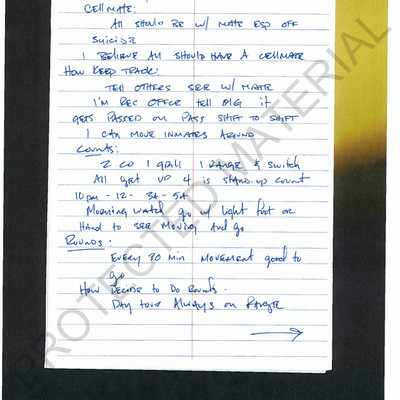 CELLMATE:
All should be w/ MATE ESP OFF
SUICIDE
I BELIEVE All should HAVE A CELLMATE
How KEEP TRACK:
TELL OTHERS SEE W/ MATE
I'm REC OFFICE TELL OIG it
GETS PASSED ON PASS SHIFT TO SHIFT
I CAN MOVE INMATES AROUND
Counts:
2 CO 1 grill 1 RANGE & switch
All get up 4 is STAND-UP count
10pm - 12 - 3A - 5A
Morning watch go w/ light foot or
HAND to SEE Moving And go
Rounds:
EVERY 30 min MOVEMENT good to
go
How DECIDE to Do Rounds -
DAY tour Always on RANGE
PROTECTED MATERIAL